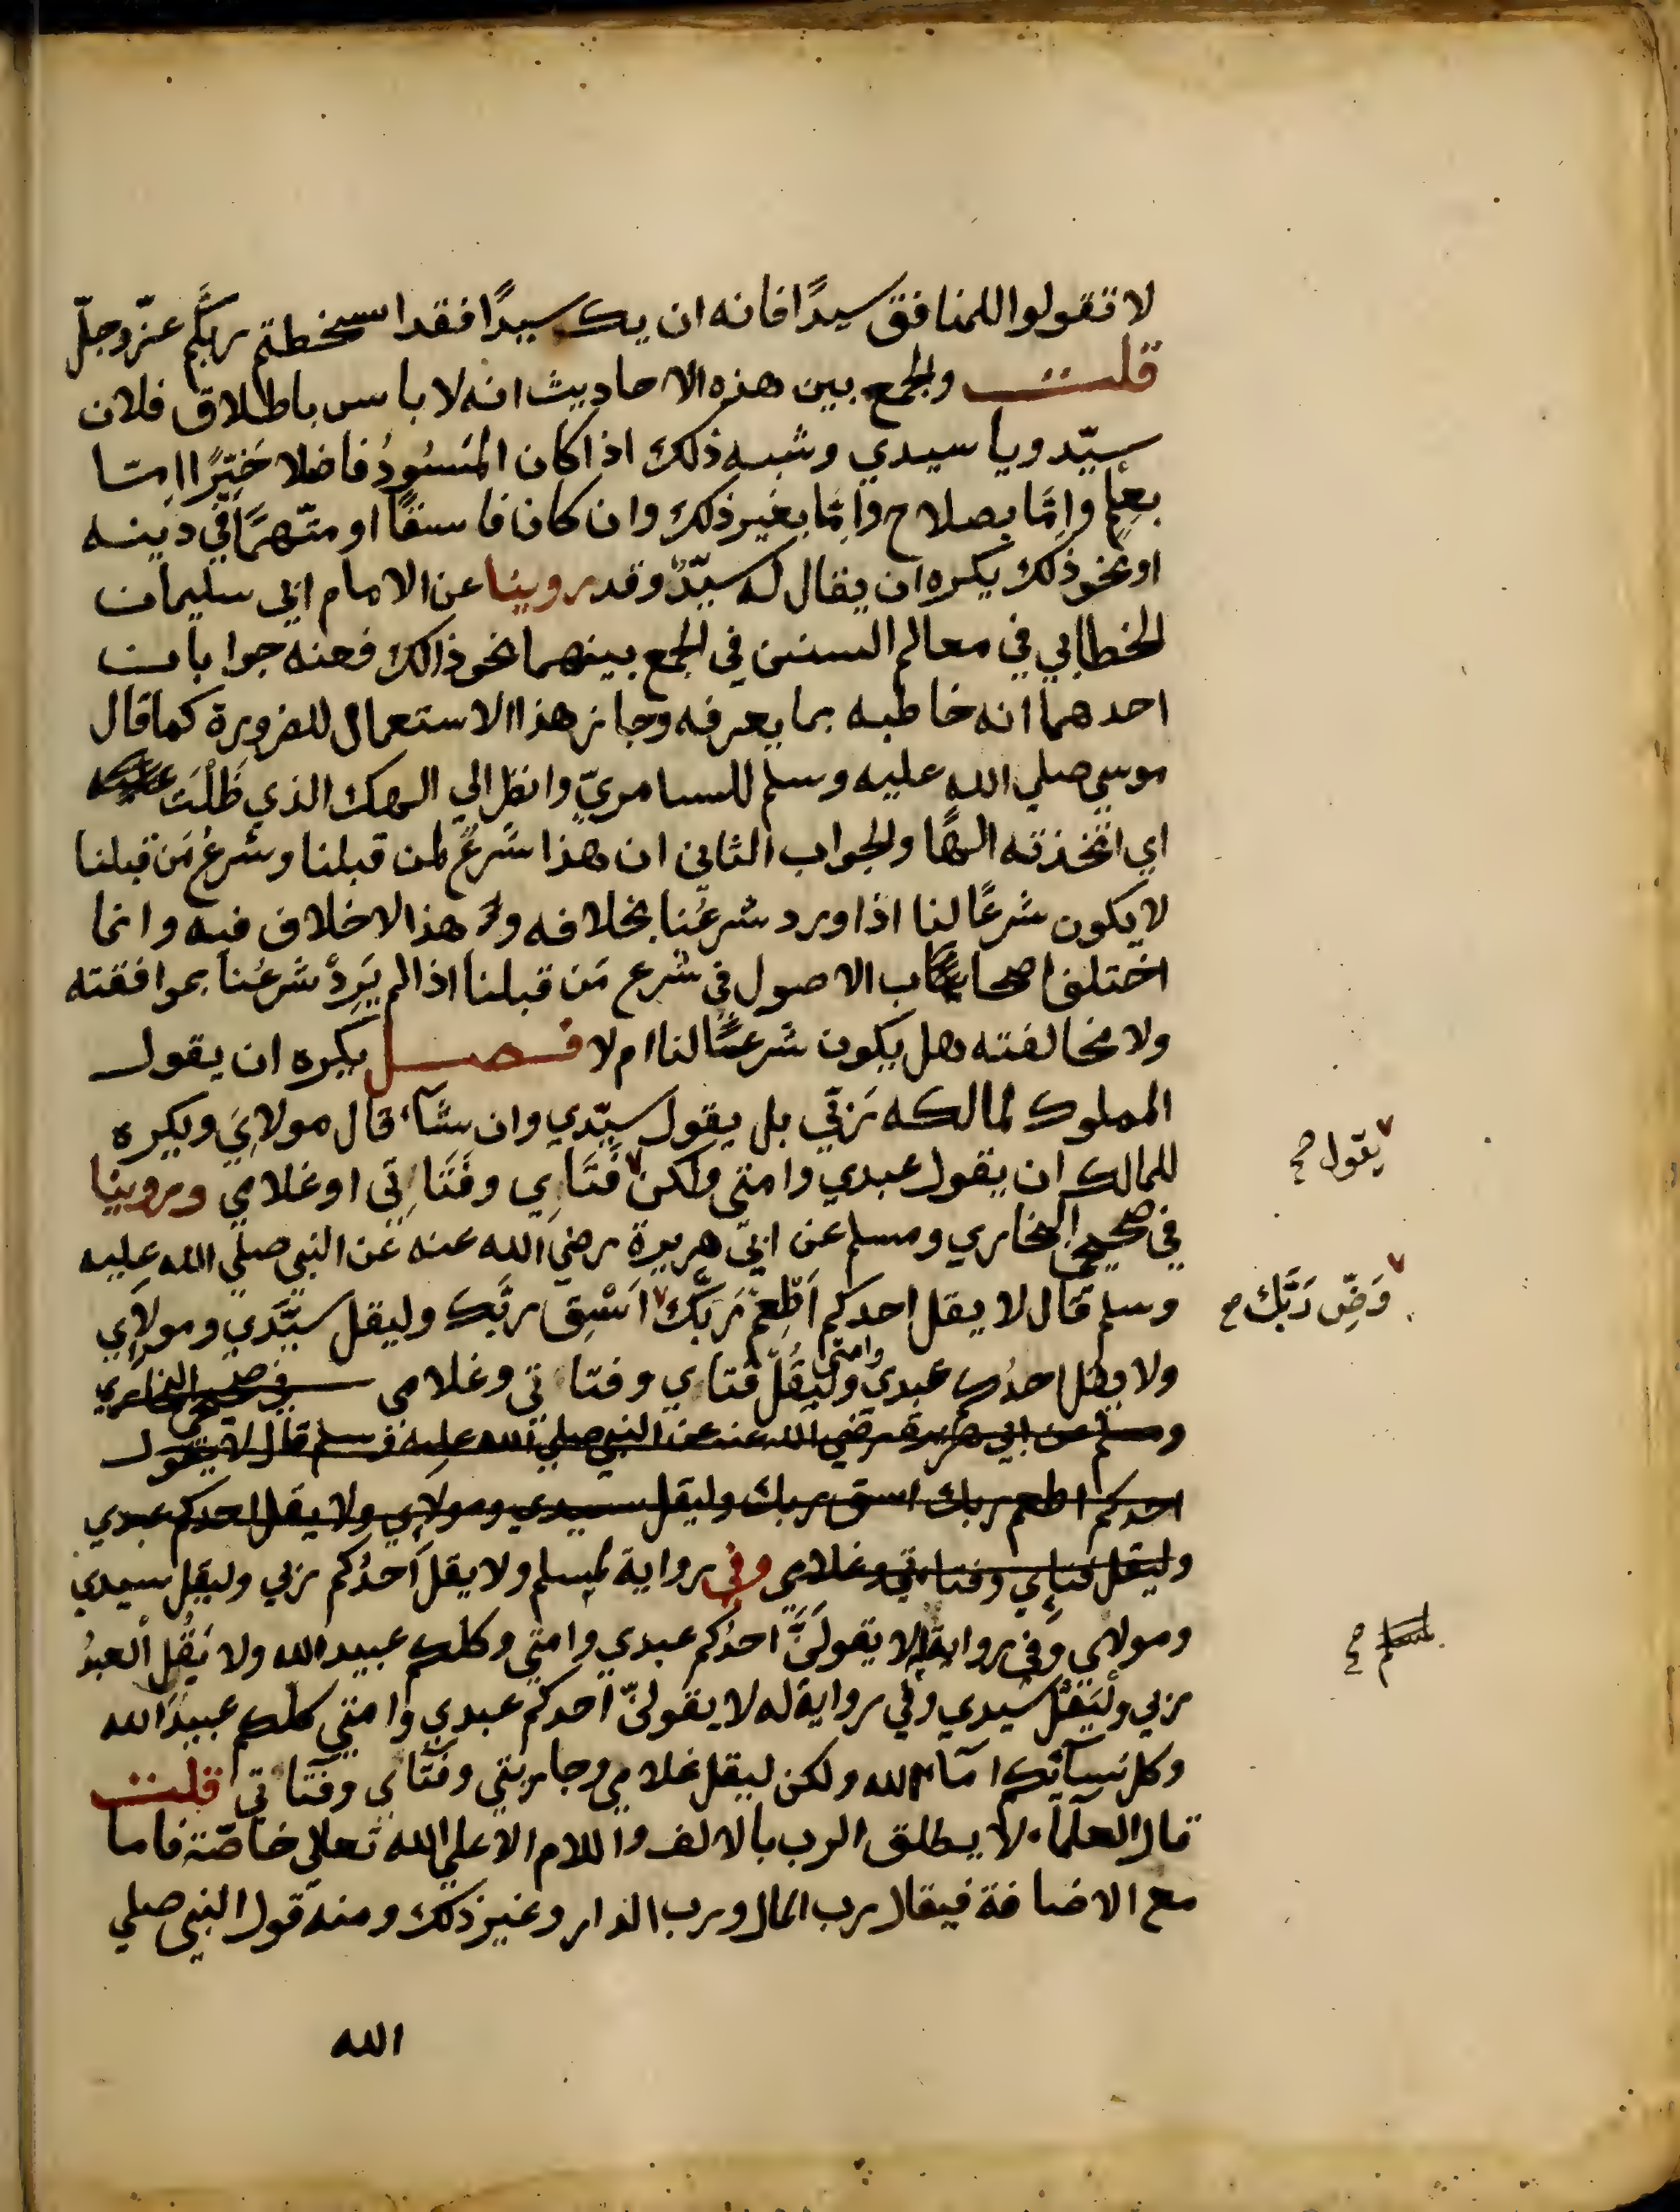 لا تقولوا للمنافق سيدًا فانه ان يك سيدًا فقد اسخطتم ربكم عزّ وجلّ
قلت والجمع بين هذه الاحاديث انه لا باس باطلاق فلان
سيّد ويا سيدي وشبه ذلك اذا كان المَسُودُ فاضلا خَيِّرًا اِمّا
بعِلمٍ واِمّا بصلاح واِمّا بغير ذلك وان كان فاسقًا او متّهمًا في دينه
او نحو ذلك يكره ان يقال له سيّدٌ وقد روينا عن الامام ابي سليمان
الخطابي في معالم السنن في الجمع بينهما نحو ذالك فعنه جوابان
احدهما انه خاطبه بما يعرفه وجاز هذا الاستعمال للضرورة كما قال
موسي صلي الله عليه وسلم للسامريّ وانظر الي الهك الذي ظَلْتَ عليه
اي اتخذته الهًا والجواب الثاني ان هذا شَرعٌ لمن قبلنا وشرعُ مَن قبلنا
لا يكون شرعًا لنا اذا ورد شرعُنا بخلافه وهذا لا خلاف فيه وانما
اختلف اصحاب الاصول في شرع مَن قبلنا اذا لم يَرِدْ شرعُنا بموافقته
ولا مخالفته هل يكون شرعًا لنا ام لا فصل يكره ان يقول
المملوك لمالكه رَبّي بل يقول سيّدي وان شآء قال مولايَ ويكره
للمالك ان يقول عبدي وامتي ولكن فَتَاي وفَتَاتِي او غلامي وروينا
يقول صح
في صحيحي البخاري ومسلم عن ابي هريرة رضي الله عنه عن النبي صلي الله عليه
وسلم قال لا يقل احدكم اَطْعِمْ رَبَّك اَسْقِ ربَّك وليقل سيّدي ومولاي
وَضِّ رَبَّك صح
ولا يقل احدُكم عبدي وامتي وليَقُلْ فتاي وفتاتي وغلامي في صحيحي البخاري
ومسلم عن ابي هريرة رضي الله عنه عن النبي صلي الله عليه وسلم قال لا يقول
احدكم اطعم ربك اسق ربك وليقل سيدي ومولاي ولا يقل احدكم عبدي
وليقل فتاي وفتاتي وغلامي وفي رواية لمسلم ولا يقل اَحدُكم ربي وليقل سيدي
ومولاي وفي رواية له لا يقولَنَّ احدُكم عبدي وامتي وكلكم عبيد الله ولا يَقُلْ العبدُ
لمسلم صح
ربي ولْيَقُلْ سيدي وفي رواية له لا يقولنّ احدكم عبدي وامتي كلكم عبيدُ الله
وكل نسآئكم امآء الله ولكن ليقل غلامي وجاريتي وفتاي وفتاتي قلت
قال العلمآء لا يطلق الرب بالالف واللام الا علي الله تعلي خاصّة فاما
مع الاضافة فيقال رب المال ورب الدار وغير ذلك ومنه قول النبي صلي
الله